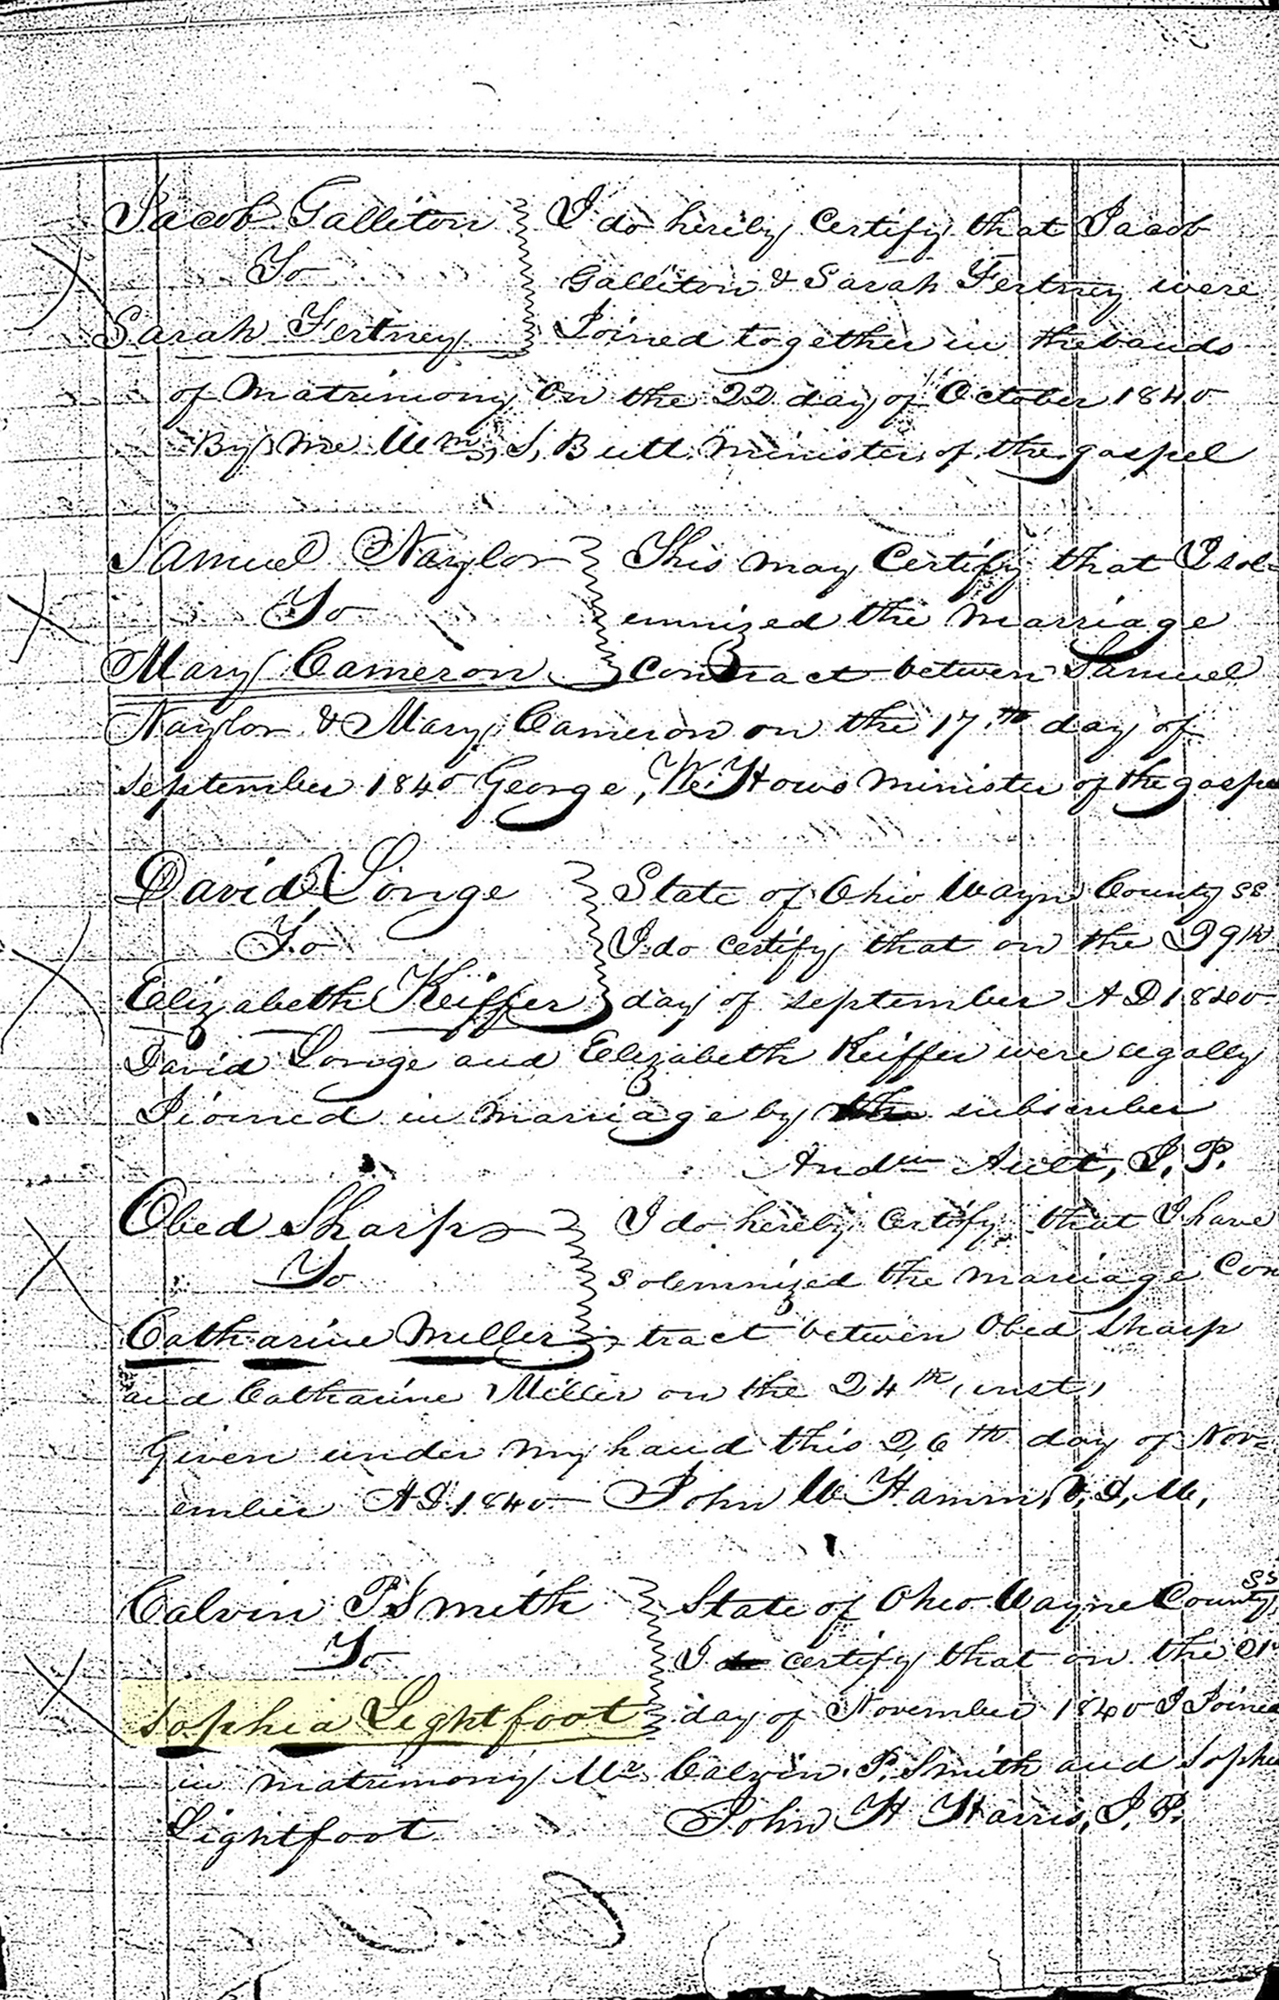 Jacob Galliton I do hereby certify that Jacob
To Galliton & Sarah Fertney were
Sarah Fertney Joined together in the bands
of Matrimony On the 22 day of October 1840
By me Wm, S, Butt Minister of the gospel
Samuel Naylor This may Certify that I sol=
To emnized the Marriage
Mary Cameron Contract betwen Samuel
Naylor & Mary Cameron on the 17th day of
September 1840 George, W. Hows Minister of the gospe
David Longe State of Ohio Wayn County ss
To I do certify that on the
Elizabeth Keiffer day of september AD 1840
David Longe and Elizabeth Keiffer were legally
Jioned in marriage by the subscriber
Ault, J. P.
Obed Sharp I do hereby Certify that I have
To Solemnized the marriage Con
Catharine Miller tract betwen Obed Sharp
and Catharine Miller on the 24th, inst,
Given under my hand this 26th day of Nov=
ember AD 1840 John W Hamm, V, D, M,
Calvin P Smith State of Ohio Wayne County, ss
To I do certify that on the 21
Sophia Lightfoot day of November 1840 I Joined
in matrimony Mr Calvin P. Smith and Sophi
Lightfoot John H Harris, J. P.